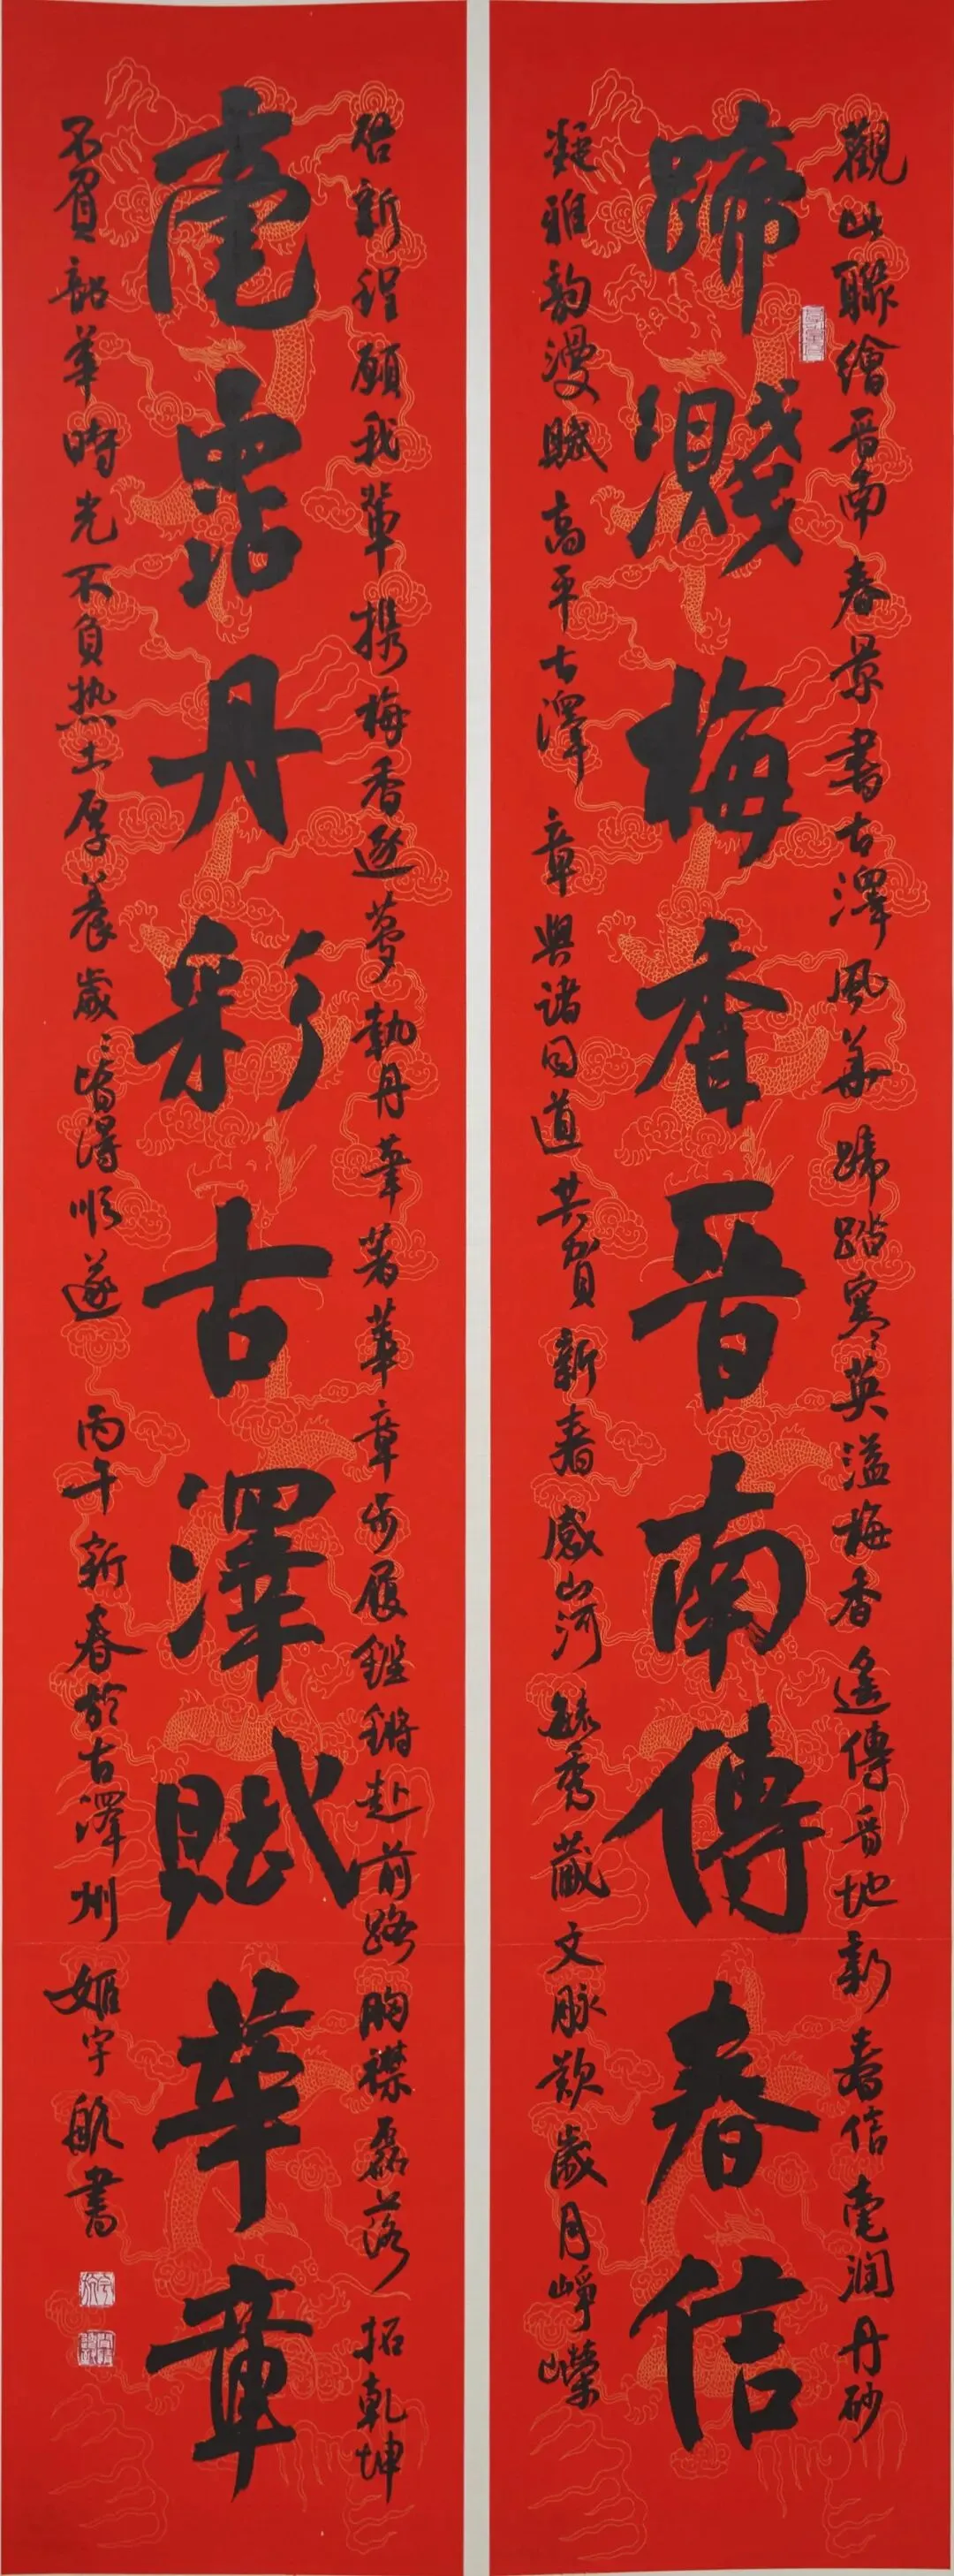 觀此聯繪晉南春景書古澤風華蹄踏寒英溢梅香遙傳晉地新春信毫潤丹砂
蹄濺梅香晉南傳春信
凝雅韵漫賦高平古澤章與諸同道共賀新春感山河毓秀藏文脉歎歲月崢嶸
启新程願我輩携梅香逐夢執丹筆著華章步履鏗鏘赴前路胸襟磊落拓乾坤
毫霑丹彩古澤賦華章
不負韶華時光不負热土厚養歲々皆得順遂丙午新春於古澤州姬宇航書